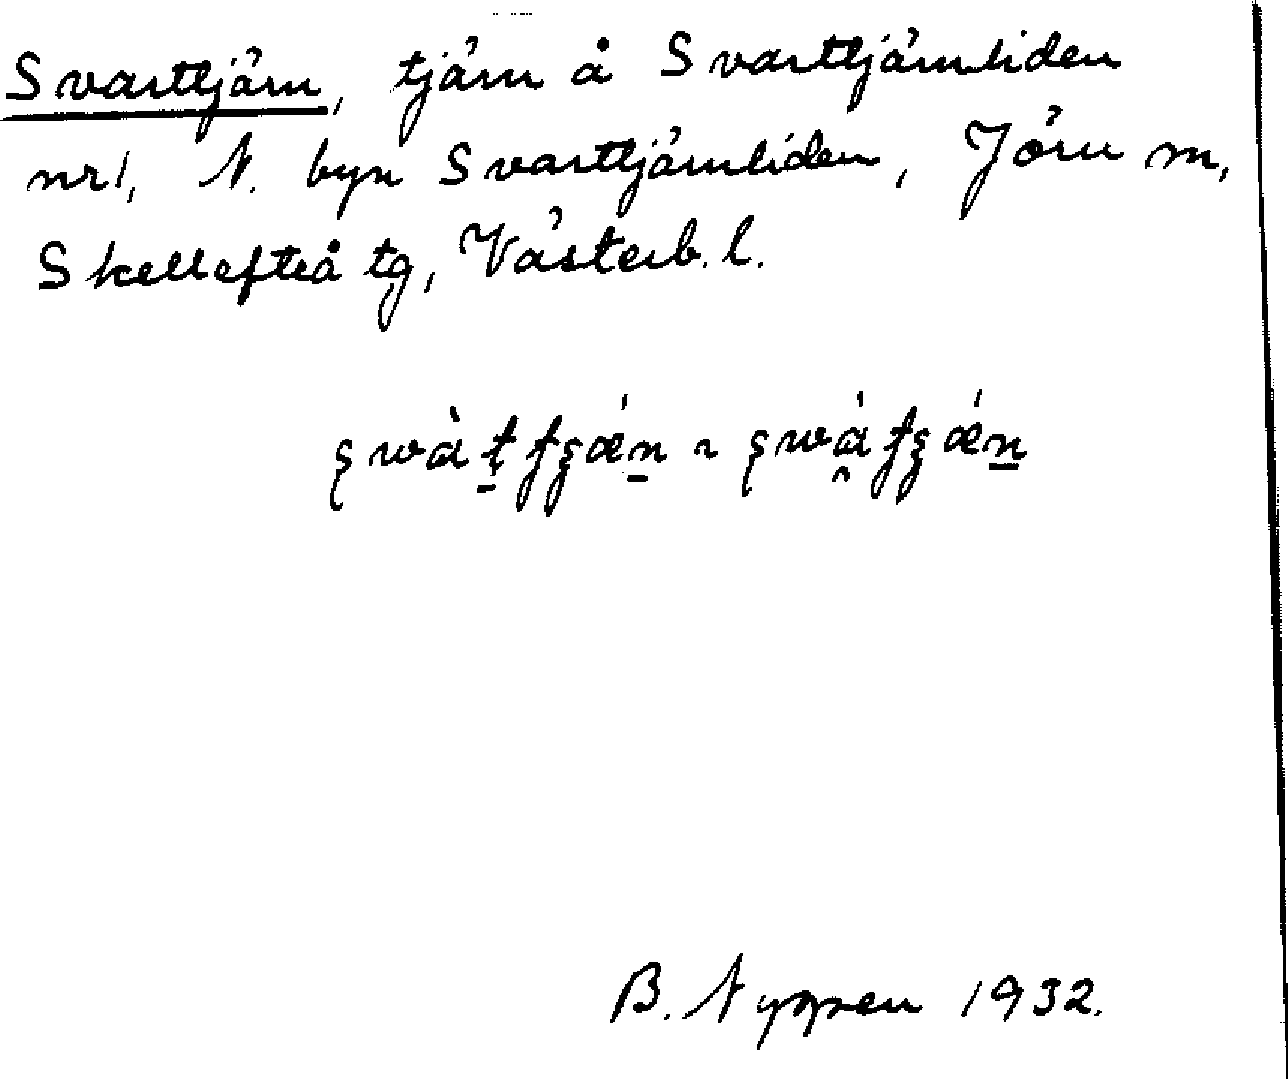 Svarttjärn, tjärn å Svarttjärnliden
nr 1, N. byn Svarttjärnliden, Jörn sn,
Skellefteå tg, Västerb. l.
B. Nyman 1932.